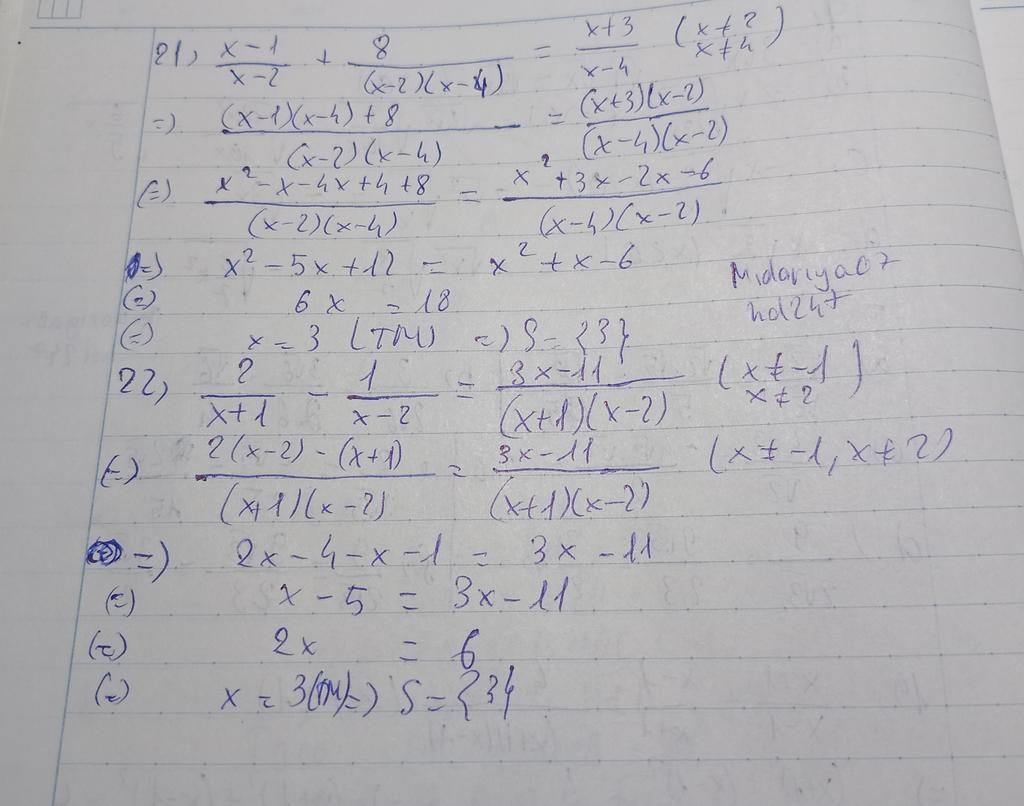 21, \frac{x-1}{x-2} + \frac{8}{(x-2)(x-4)} = \frac{x+3}{x-4} (x≠2 x≠4)
=) \frac{(x-1)(x-4)+8}{(x-2)(x-4)} = \frac{(x+3)(x-2)}{(x-4)(x-2)}
(=) \frac{x^2-x-4x+4+8}{(x-2)(x-4)} = \frac{x^2+3x-2x-6}{(x-4)(x-2)}
=) x^2-5x+12 = x^2+x-6
(=) 6x = 18
(=) x = 3 (TM) =) S = {3}
Midariya07
hd247
22, \frac{2}{x+1} - \frac{1}{x-2} = \frac{3x-11}{(x+1)(x-2)} (x≠-1 x≠2)
(=) \frac{2(x-2)-(x+1)}{(x+1)(x-2)} = \frac{3x-11}{(x+1)(x-2)} (x≠-1, x≠2)
=) 2x-4-x-1 = 3x-11
(=) x-5 = 3x-11
(=) 2x = 6
(=) x = 3(TM) =) S = {3}